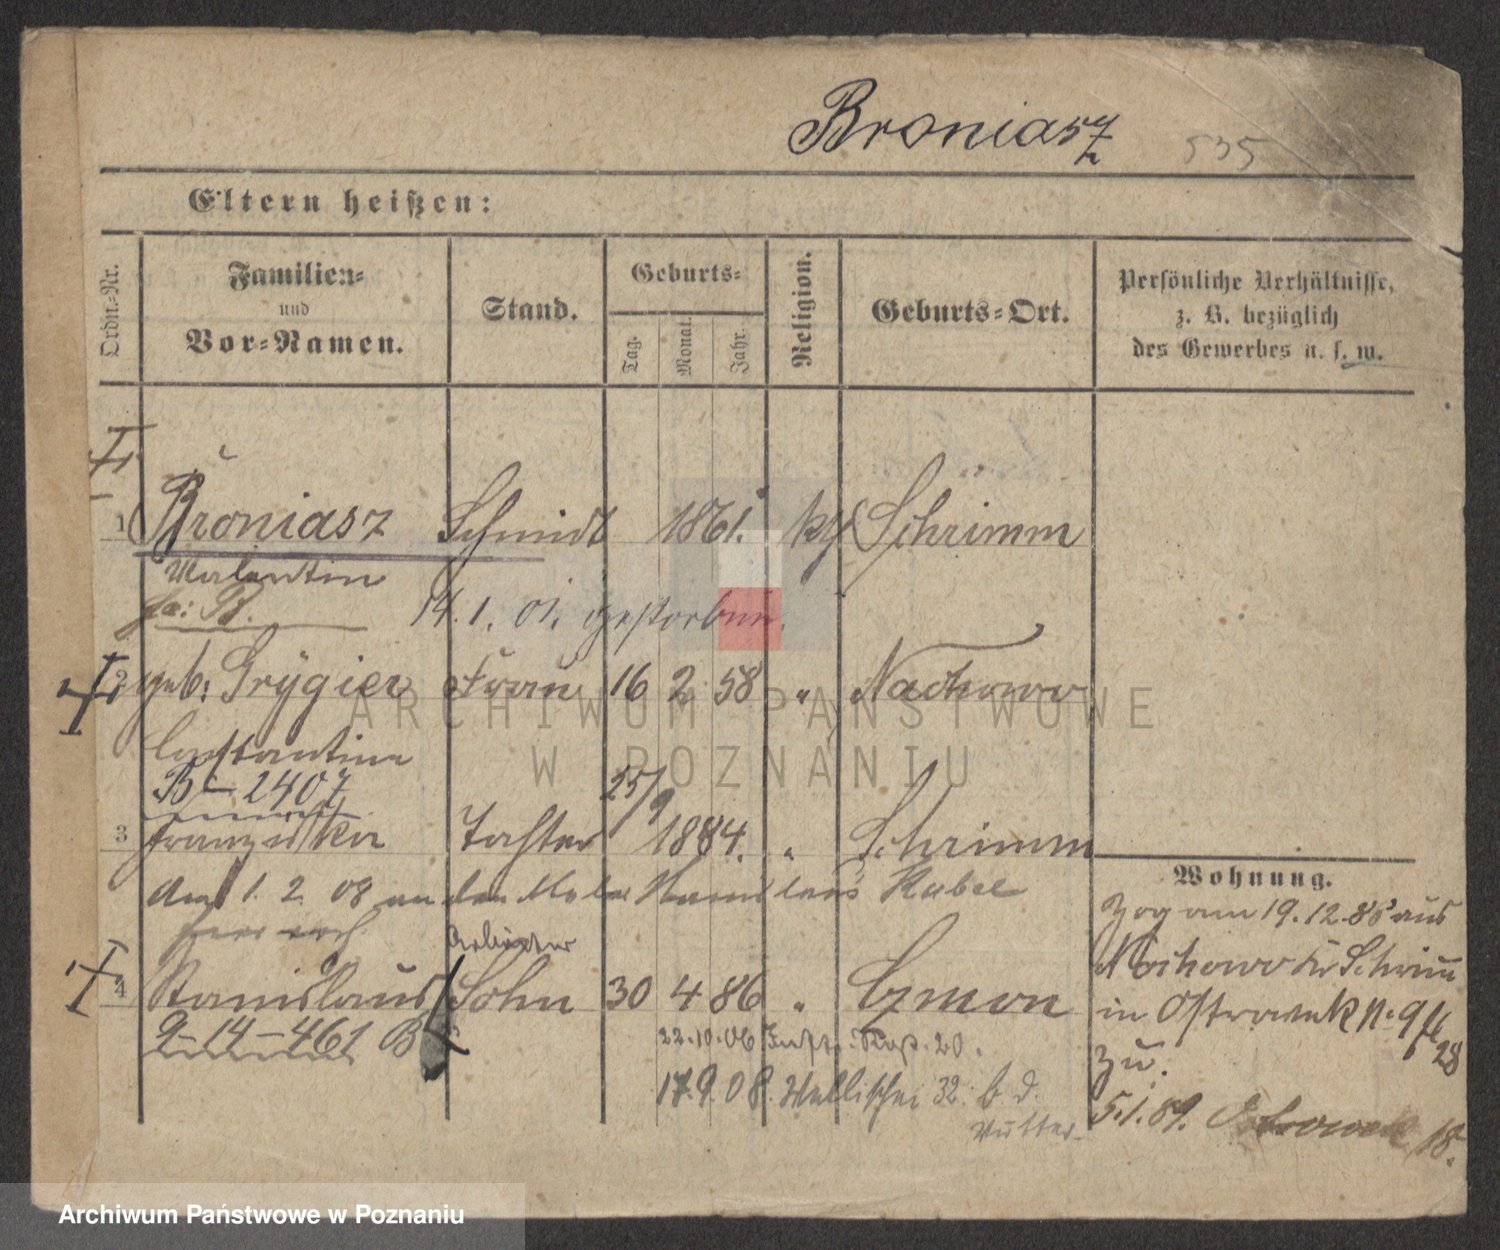 Broniasz 535
Eltern heißen:
Ordn=Nr. Familien= und Vor=Namen. Stand. Geburts= Tag. Monat. Jahr. Religion. Geburts=Ort. Persönliche Verhältnisse, z. B. bezüglich des Gewerbes u. s. w.
1 Broniasz Schmidt 1861. kth Schrimm
Valentin
14.1.01. gestorben.
2 geb: Grygier Frau 16 2 58 " Nochowo
Constantina
B - 2407 25/9
3 Franziska Tochter 1884. " Schrimm
Am 1. 2. 08 an den Maler Stanislaus Kubel
Wohnung.
Arbeiter
4 Stanislaus Sohn 30 4 86 " Czmon
9-14-461 B
22.10.06
17.9.08. Wallischei 32 b. d. Mutter
Zog am 19.12.85 aus
Nochowo Kr Schrimm
in Ostrowek No 9
28
zu.
5.1.89. Ostrowek 18.
ARCHIWUM PAŃSTWOWE
W POZNANIU
Archiwum Państwowe w Poznaniu